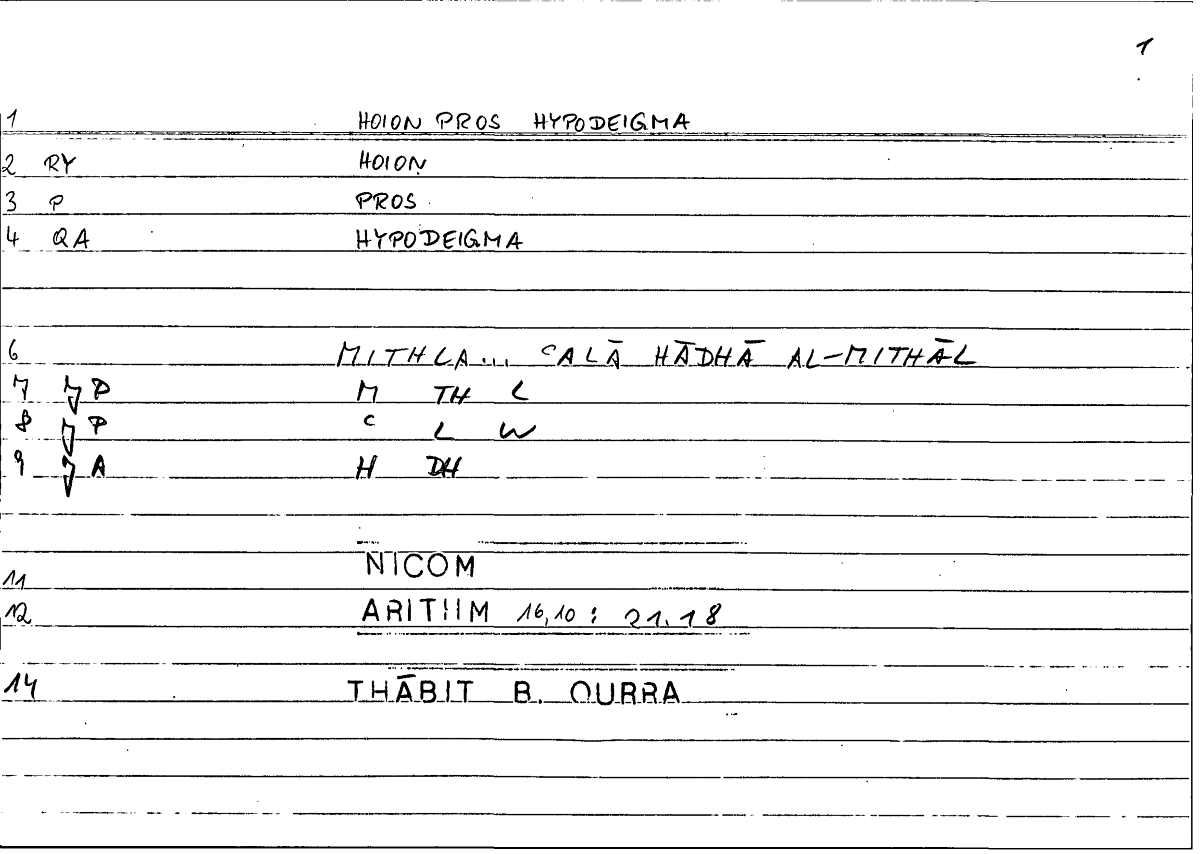 1
1 HOION PROS HYPODEIGMA
2 RY HOION
3 P PROS
4 QA HYPODEIGMA
6 MITHLA... ᶜALĀ HĀDHĀ AL-MITHĀL
7 P M TH L
8 P ᶜ L W
9 A H DH
11 NICOM
12 ARITHM 16,10 : 21.18
14 THĀBIT B. QURRA